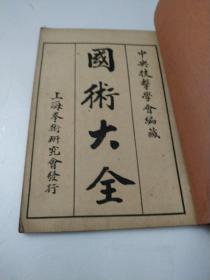 中央技擊學會編藏
國術大全
上海拳術研究會發行